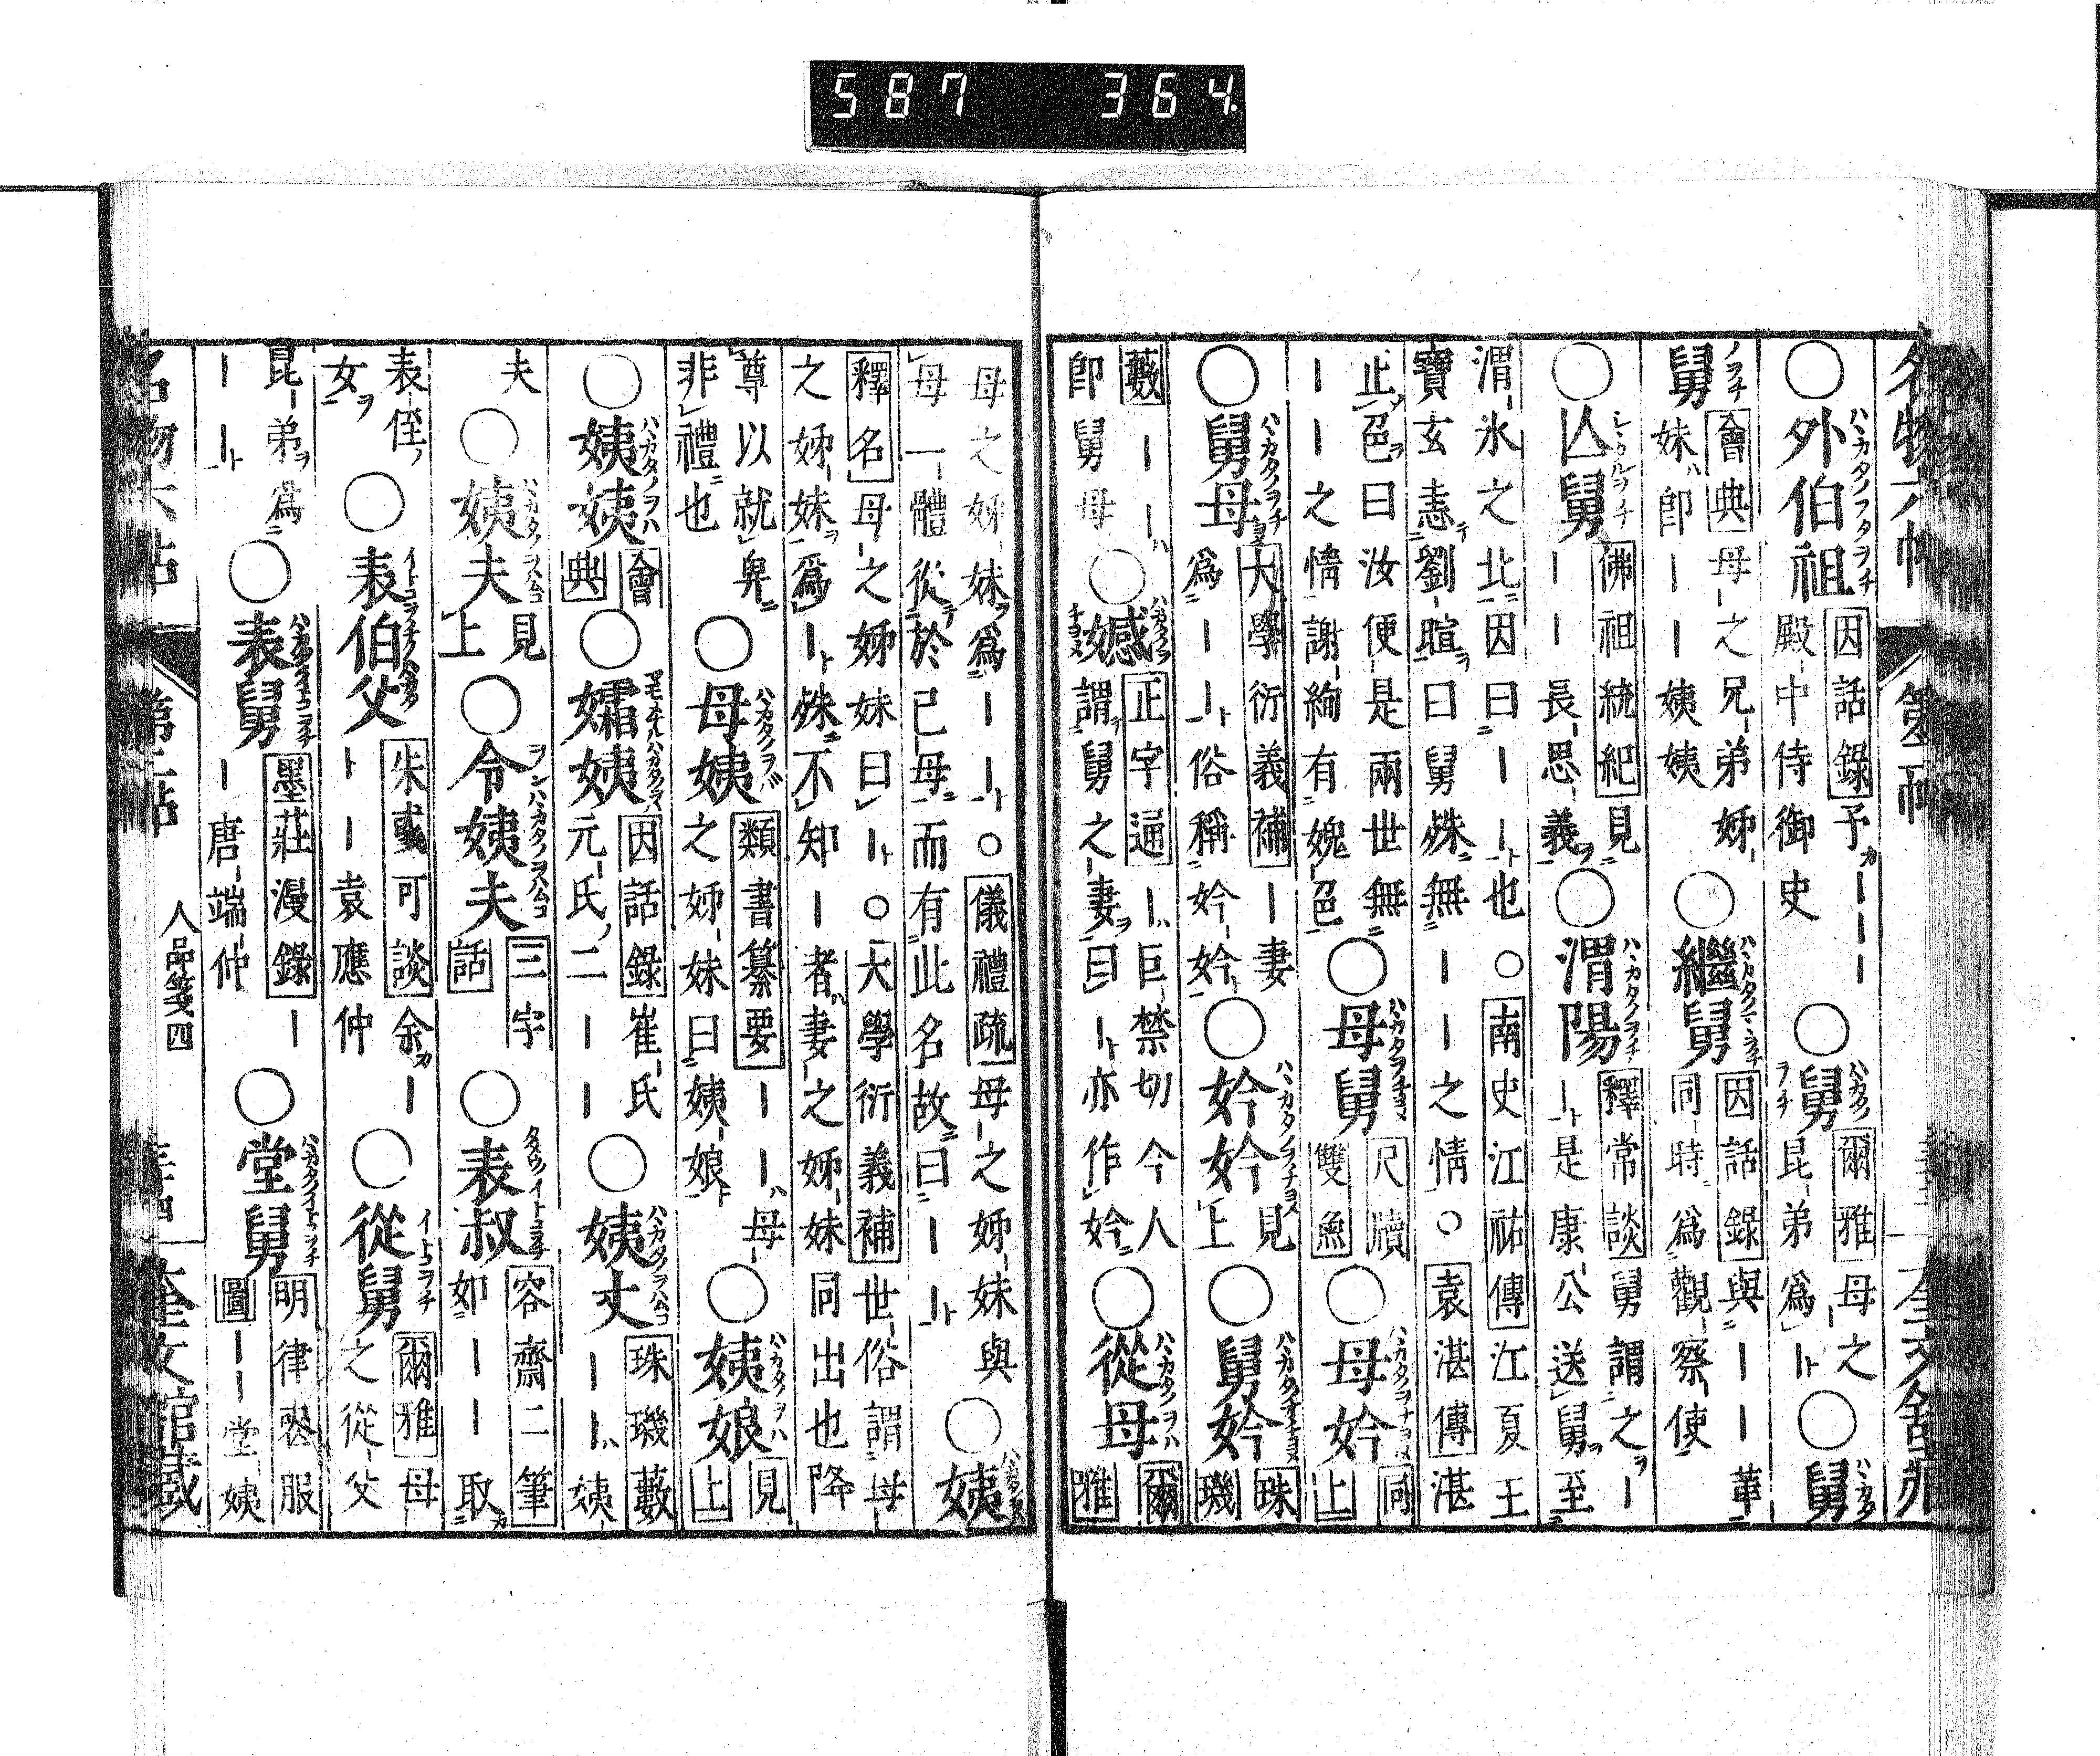 587 364
名物六帖 第二帖 奎文館藏
○外伯祖 ハハカタノフタヲヂ 因話錄 予ガ｜｜｜殿中侍御史 ○舅 ハハカタノヲヂ 爾雅 母之昆弟爲｜ ○舅 ハハカタ
ノヲヂ 會典 母之兄弟姊妹即｜｜姨姨 ○繼舅 因話錄 與｜｜華同時爲觀察使
○亾舅 佛祖統紀 見｜｜長思義 ○渭陽 ハハカタノヲヂ 釋常談 舅謂之｜｜是康公送舅至
渭水之北因曰｜｜也○南史江祐傳 江夏王寶玄恚劉暄曰舅殊無｜｜之情○袁湛傳 湛
正色曰汝便是兩世無｜｜之情謝絢有媿色 ○母舅 尺牘雙魚 ○母妗 同上
○舅母 大學衍義補 ｜妻爲｜｜俗稱妗妗 ○妗妗 見上 ○舅妗 珠璣
藪 ｜｜即舅母 ○㜝 正字通 ｜巨禁切今人謂舅之妻曰｜亦作妗 ○從母 ハハカタノヲハ 爾雅
母之姊妹爲｜｜○儀禮疏 母之姊妹與母一體從於己母而有此名故曰｜｜ ○姨
釋名 母之姊妹曰｜○大學衍義補 世俗謂母之姊妹爲｜殊不知｜者妻之姊妹同出也降
尊以就卑非禮也 ○母姨 類書纂要 ｜｜母之姊妹曰姨娘 ○姨娘 見上
○姨姨 ハハカタノヲハ 會典 ○孀姨 因話錄 崔氏元氏二｜｜ ○姨丈 珠璣藪 ｜｜姨
夫 ○姨夫 見上 ○令姨夫 三字話 ○表叔 容齋二筆 如｜｜取
表侄女 ○表伯父 朱彧可談 余｜｜｜袁應仲 ○從舅 イトコヲヂ 爾雅 母之從父
昆弟爲｜｜ ○表舅 墨莊漫錄 ｜｜唐端仲 ○堂舅 明律喪服圖 ｜｜堂姨
名物六帖 第二帖 人品箋四 奎文館藏